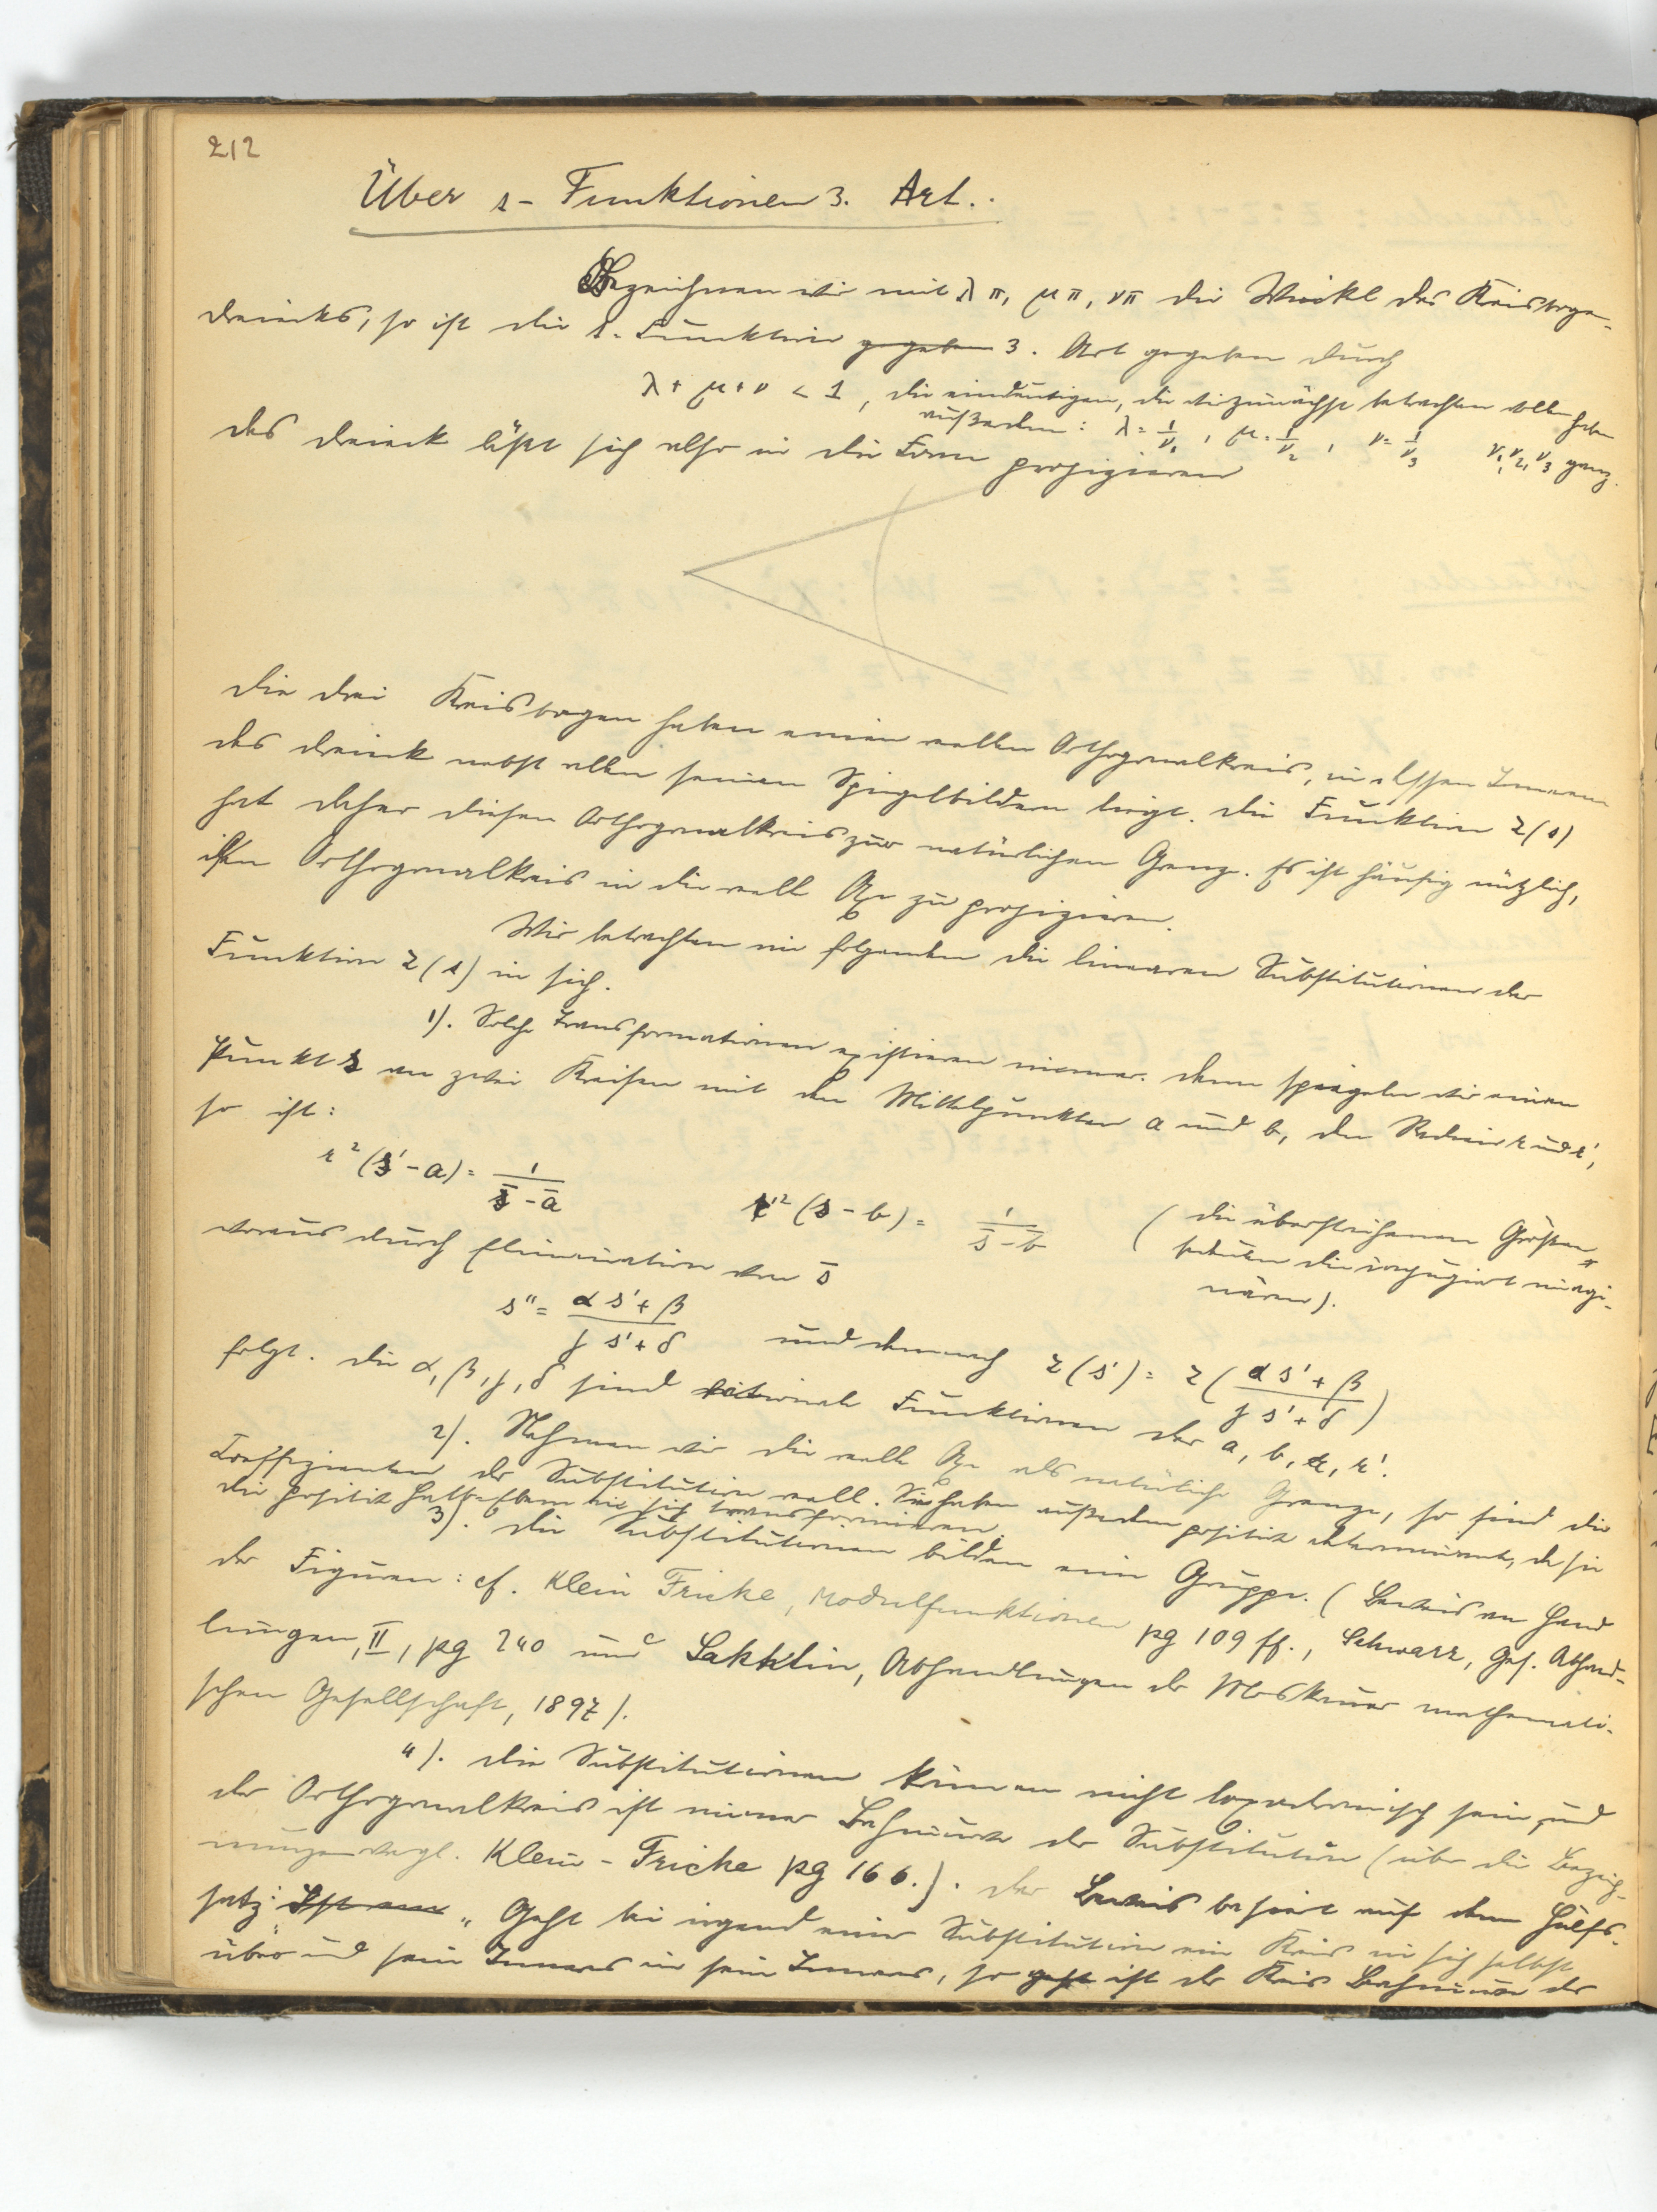 212
Über s-Funktionen 3. Art.
Bezeichnen wir mit λπ, μπ, νπ die Winkel des Kreisboge-
dreiecks, so ist die s-Funktion gegeben 3. Art gegeben durch
λ + μ + ν < 1, die eindeutigen, die wir zunächst betrachten wollen haben
außerdem: λ = 1/ν₁, μ = 1/ν₂, ν = 1/ν₃ ν₁, ν₂, ν₃ ganz.
das Dreieck läßt sich also in die Form projizieren
Die drei Kreisbogen haben einen reellen Orthogonalkreis, in dessen Innern
das Dreieck nebst allen seinen Spiegelbildern liegt. Die Funktion z(s)
hat daher diesen Orthogonalkreis zur natürlichen Grenze. Es ist häufig nützlich,
den Orthogonalkreis in die reelle Axe zu projizieren.
Wir betrachten im folgenden die linearen Substitutionen der
Funktion z(s) in sich.
1). Solche Transformationen existieren immer. Denn spiegeln wir einen
Punkt s an zwei Kreisen mit den Mittelpunkten a und b, den Radien r und r',
so ist:
r²(s'-a) = 1/(s̄-ā) r'²(s-b) = 1/(s̄-b̄) (die überstrichenen Größen
bedeuten die conjugiert imagi-
nären).
woraus durch Elimination von s̄
s'' = (αs'+β)/(γs'+δ) und demnach z(s') = z((αs'+β)/(γs'+δ))
folgt. Die α, β, γ, δ sind rationale Funktionen der a, b, r, r'.
2). Nehmen wir die reelle Axe als natürliche Grenze, so sind die
Coeffizienten der Substitution reell. Sie haben außerdem positive Determinante, da sie
die positive Halbebene in sich transformieren.
3). Die Substitutionen bilden eine Gruppe. (Beweis an Hand
der Figuren: cf. Klein Fricke, Modulfunktionen pg 109 ff., Schwarz, Ges. Abhand-
lungen, II, pg 240 und Lakhtin, Abhandlungen der Moskauer mathemati-
schen Gesellschaft, 1897).
4). Die Substitutionen können nicht loxodromisch sein, und
der Orthogonalkreis ist immer Bahncurve der Substitution (über die Bezeich-
nungen vergl. Klein-Fricke pg 166.). Der Beweis basiert auf dem Hülfs-
satz: Ist eine „Geht bei irgend einer Substitution ein Kreis in sich selbst
über und sein Inneres in sein Inneres, so geht ist der Kreis Bahncurve der